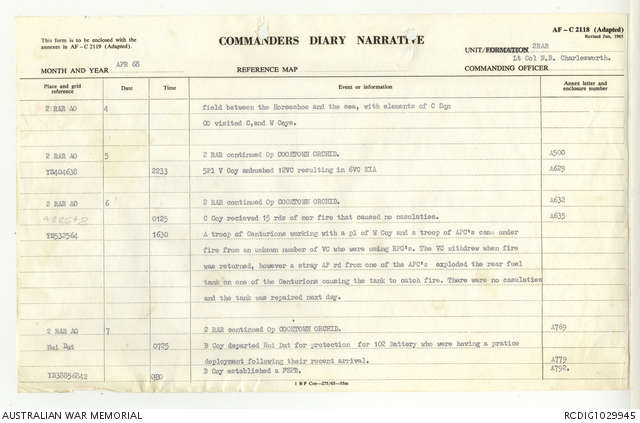 AF - C 2118 (Adapted)
Revised Jun, 1965
This form is to be enclosed with the
annexes in AF - C 2119 (Adapted).
COMMANDERS DIARY NARRATIVE
UNIT/FORMATION 2RAR
Lt Col N.R. Charlesworth.
MONTH AND YEAR APR 68 REFERENCE MAP COMMANDING OFFICER
Place and grid reference Date Time Event or information Annex letter and enclosure number
2 RAR AO 4 field between the Horseshoe and the sea, with elements of C Sqn
CO visited C, and W Coys.
2 RAR AO 5 2 RAR continued Op COOKTOWN ORCHID. A500
YS404638 2233 5Pl V Coy ambushed 12VC resulting in 6VC KIA A629
2 RAR AO 6 2 RAR continued Op COOKTOWN ORCHID. A632
0125 C Coy recieved 15 rds of mor fire that caused no casulaties. A635
YS532564 1630 A troop of Centurions working with a pl of W Coy and a troop of APC's came under
fire from an unknown number of VC who were using RPG's. The VC withdrew when fire
was returned, however a stray AP rd from one of the APC's exploded the rear fuel
tank on one of the Centurions causing the tank to catch fire. There were no casulaties
and the tank was repaired next day.
2 RAR AO 7 2 RAR continued Op COOKTOWN ORCHID. A769
Nui Dat 0725 B Coy departed Nui Dat for protection for 102 Battery who were having a pratice
deployment following their recent arrival. A779
YS38856842 B Coy established a FSPB. A792.
1 R P Coy-275/65-55m
AUSTRALIAN WAR MEMORIAL RCDIG1029945